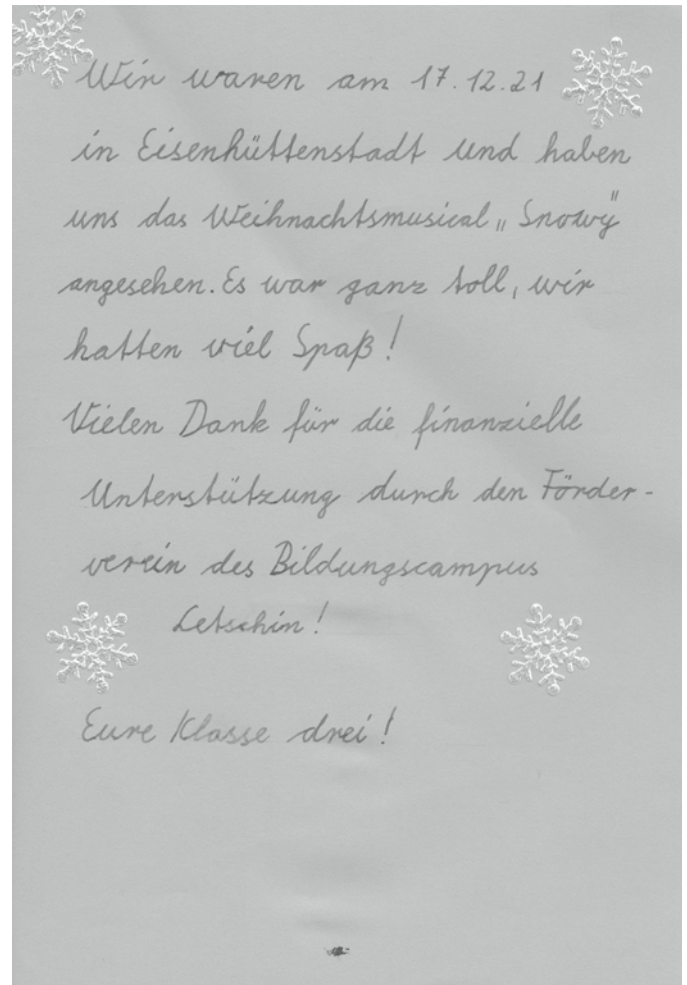 Wir waren am 17.12.21
in Eisenhüttenstadt und haben
uns das Weihnachtsmusical „Snowy"
angesehen. Es war ganz toll, wir
hatten viel Spaß!
Vielen Dank für die finanzielle
Unterstützung durch den Förder-
verein des Bildungscampus
Letschin!
Eure Klasse drei!